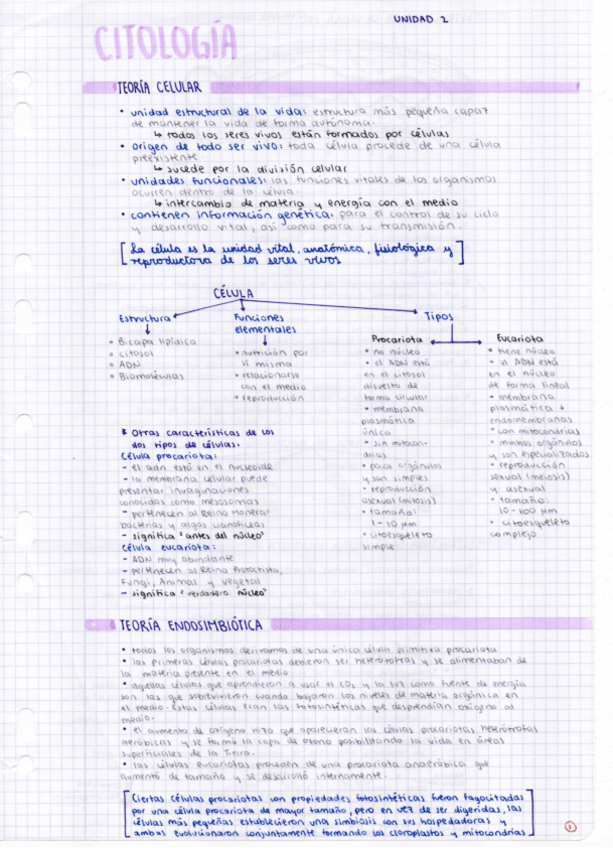 UNIDAD 2
CITOLOGÍA
TEORÍA CELULAR
• unidad estructural de la vida: estructura más pequeña capaz
de mantener la vida de forma autónoma.
↳ todos los seres vivos están formados por células
• origen de todo ser vivo: toda célula procede de una célula
preexistente
↳ sucede por la división celular
• unidades funcionales: las funciones vitales de los organismos
ocurren dentro de la célula.
↳ intercambio de materia y energía con el medio
• contienen información genética: para el control de su ciclo
y desarrollo vital, así como para su transmisión.
[La célula es la unidad vital, anatómica, fisiológica y
reproductora de los seres vivos]
CÉLULA
Estructura
• Bicapa lipídica
• citosol
• ADN
• Biomoléculas
Funciones
elementales
• nutrición por
sí misma
• relacionarse
con el medio
• reproducción
Tipos
Procariota
• no núcleo
• el ADN está
en el citosol
disuelto de
forma circular
• membrana
plasmática
única
• sin mitocon-
drias
• pocos orgánulos
y son simples
• reproducción
asexual (mitosis)
• tamaño:
1-10 µm
• citoesqueleto
simple
Eucariota
• tiene núcleo
• el ADN está
en el núcleo
de forma lineal
• membrana
plasmática +
endomembranas
• con mitocondrias
• muchos orgánulos
y son especializados
• reproducción
sexual (meiosis)
y asexual
• tamaño:
10-100 µm
• citoesqueleto
complejo
* Otras características de los
dos tipos de células:
Célula procariota:
- el adn está en el nucleoide
- la membrana celular puede
presentar invaginaciones
conocidas como mesosomas
- pertenecen al Reino Monera:
bacterias y algas cianofíceas
- significa "antes del núcleo"
Célula eucariota:
- ADN muy abundante
- pertenecen al Reino Protoctista,
Fungi, Animal y vegetal
- significa "verdadero núcleo"
TEORÍA ENDOSIMBIÓTICA
• todos los organismos derivamos de una única célula primitiva procariota
• las primeras células procariotas debieron ser heterótrofas y se alimentaban de
la materia presente en el medio
• aquellas células que aprendieron a usar el CO₂ y la luz como fuente de energía
son las que sobrevivieron cuando bajaron los niveles de materia orgánica en
el medio. Estas células eran las fotosintéticas que desprendían oxígeno al
medio.
• el aumento de oxígeno hizo que aparecieran las células procariotas heterótrofas
aeróbicas y se formó la capa de ozono posibilitando la vida en áreas
superficiales de la Tierra.
• las células eucariotas proceden de una procariota anaeróbica que
aumentó de tamaño y se desarrolló internamente.
[Ciertas células procariotas con propiedades fotosintéticas fueron fagocitadas
por una célula procariota de mayor tamaño, pero en vez de ser digeridas, las
células más pequeñas establecieron una simbiosis con sus hospedadoras y
ambas evolucionaron conjuntamente formando los cloroplastos y mitocondrias]
1